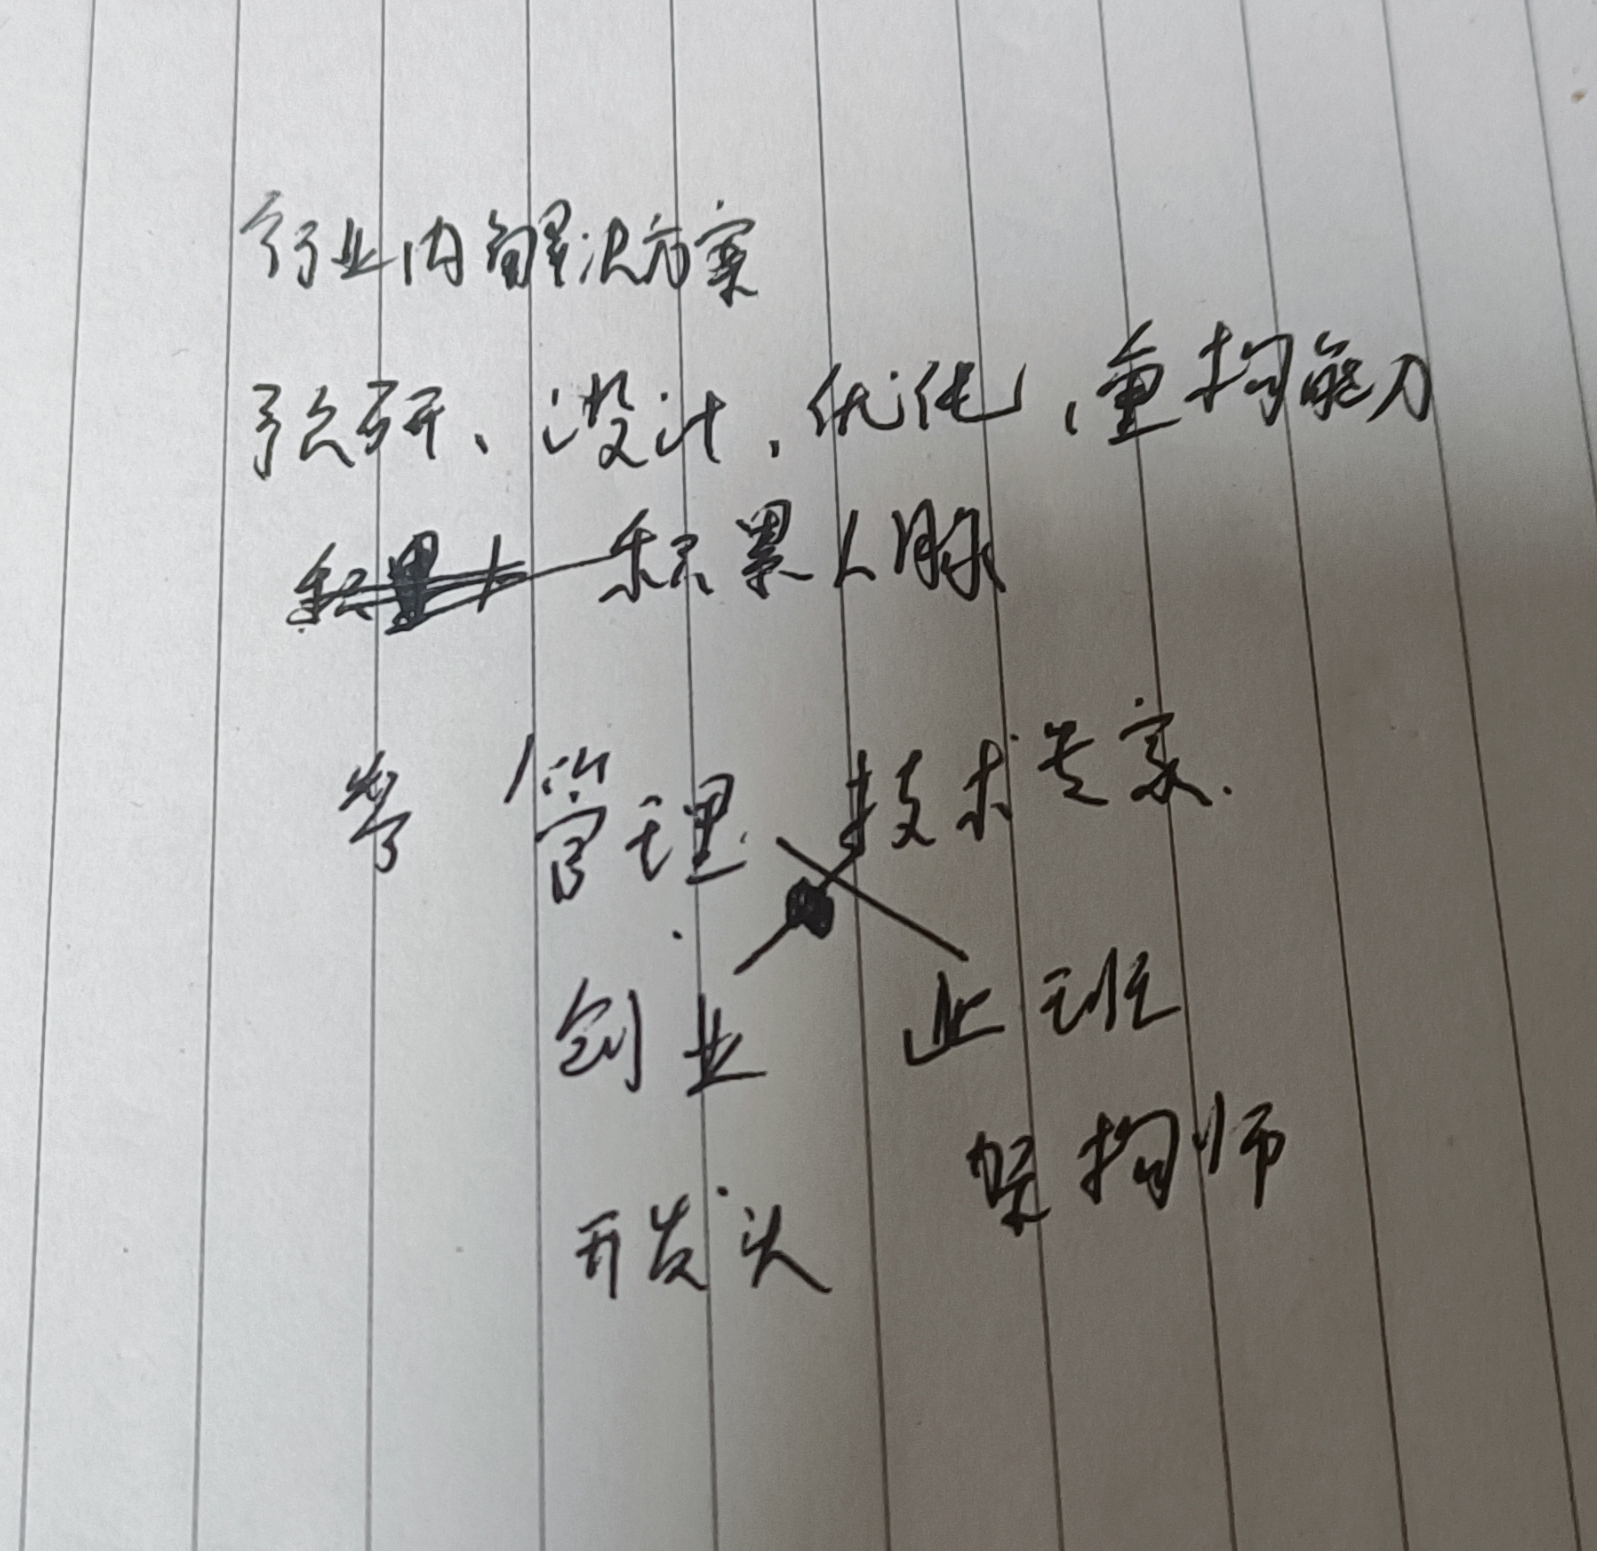 行业内解决方案
预研、设计,优化,重构能力
积累人脉
管理 技术专家.
创业 上班
架构师
开发 头